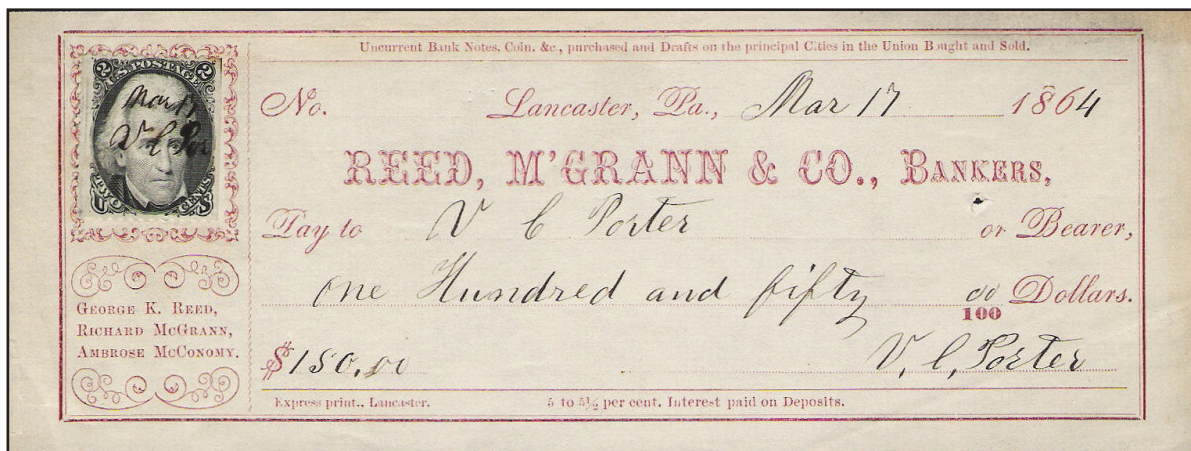 Uncurrent Bank Notes, Coin, &c., purchased and Drafts on the principal Cities in the Union Bought and Sold.
2 U.S. POSTAGE 2
Mar 17
V C Por
TWO CENTS
No. Lancaster, Pa., Mar 17 1864
REED, M'GRANN & CO., BANKERS,
Pay to V C Porter or Bearer,
one Hundred and fifty 00/100 Dollars.
GEORGE K. REED,
RICHARD MCGRANN,
AMBROSE MCCONOMY.
$150.00
V, C, Porter
Express print., Lancaster. 5 to 5½ per cent. Interest paid on Deposits.